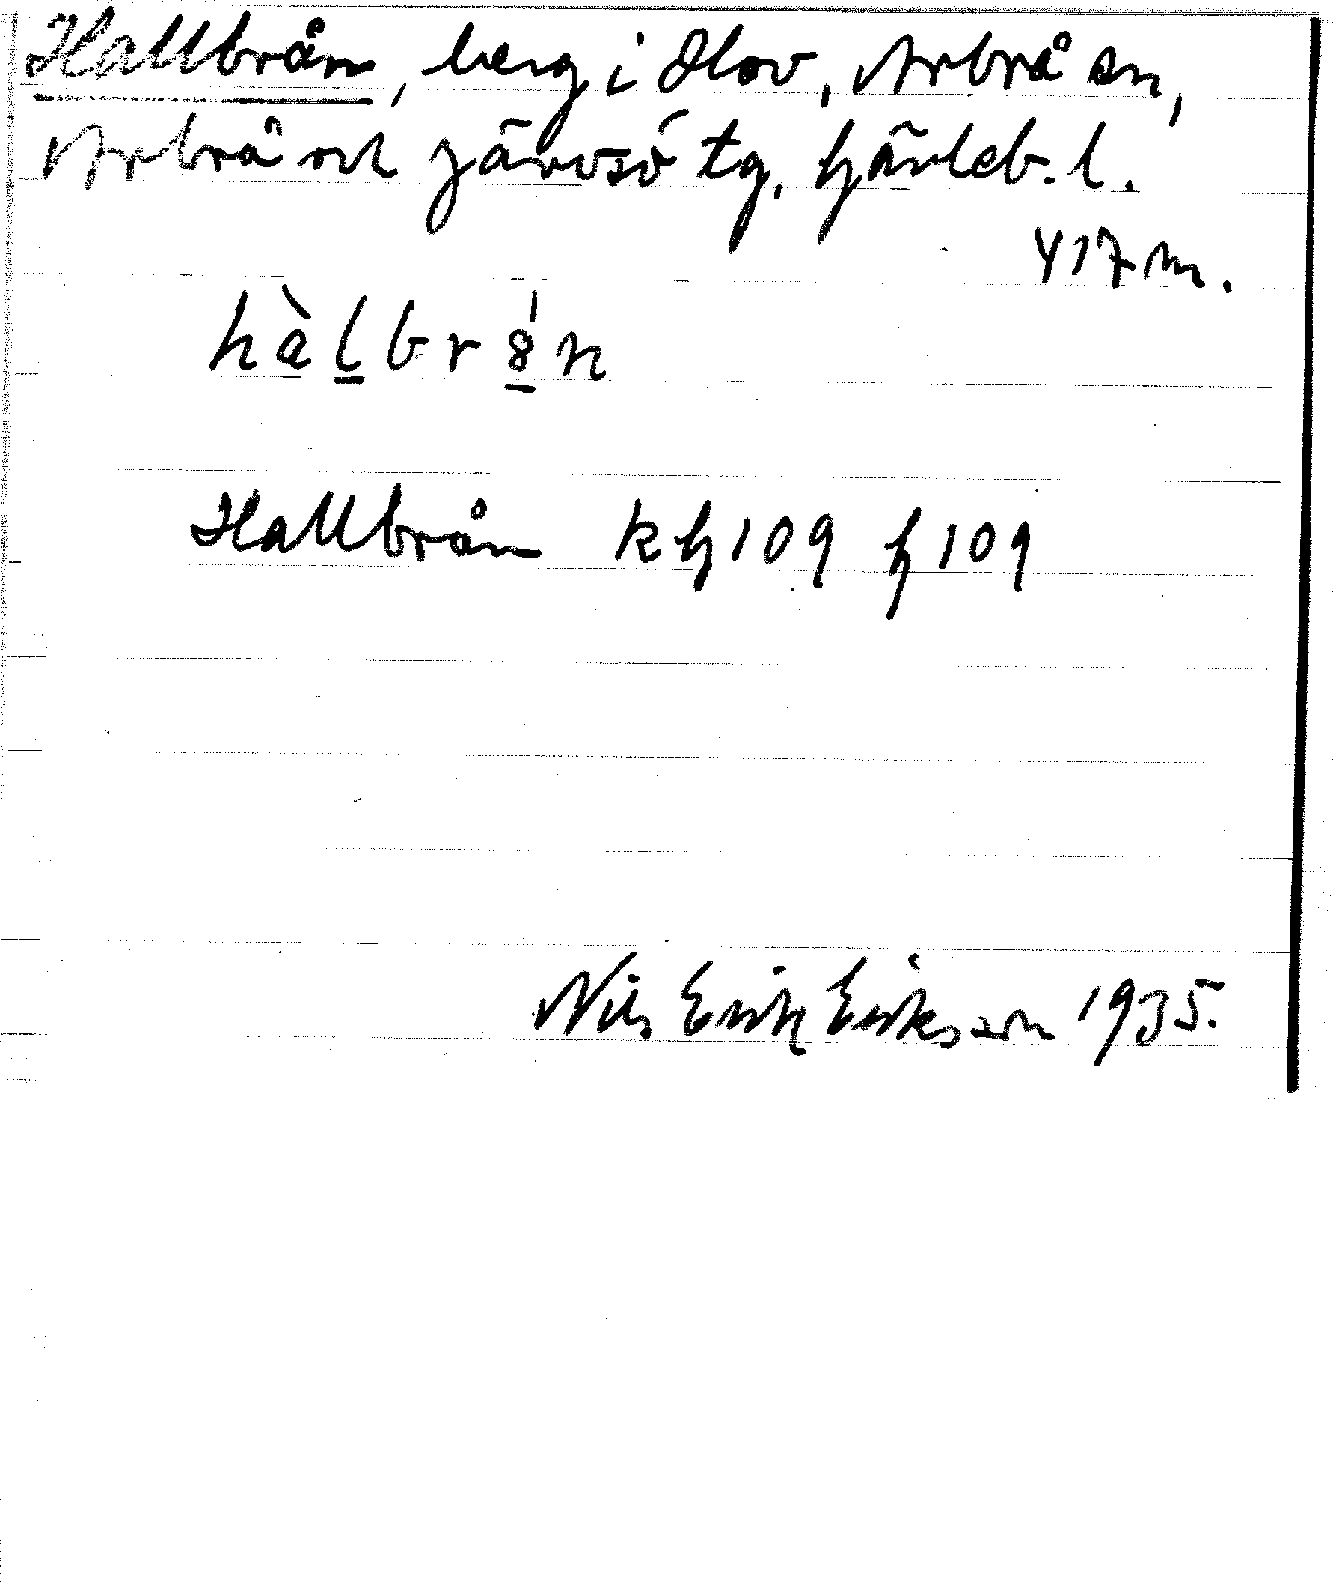 Hallbrån, berg i Flov, Arbrå sn,
Arbrå och Järvsö tg, Gävleb. l.
417 m.
hàl̲br8̲́n
Hallbrån k h 109 h 109
Nils Erik Eriksson 1935.